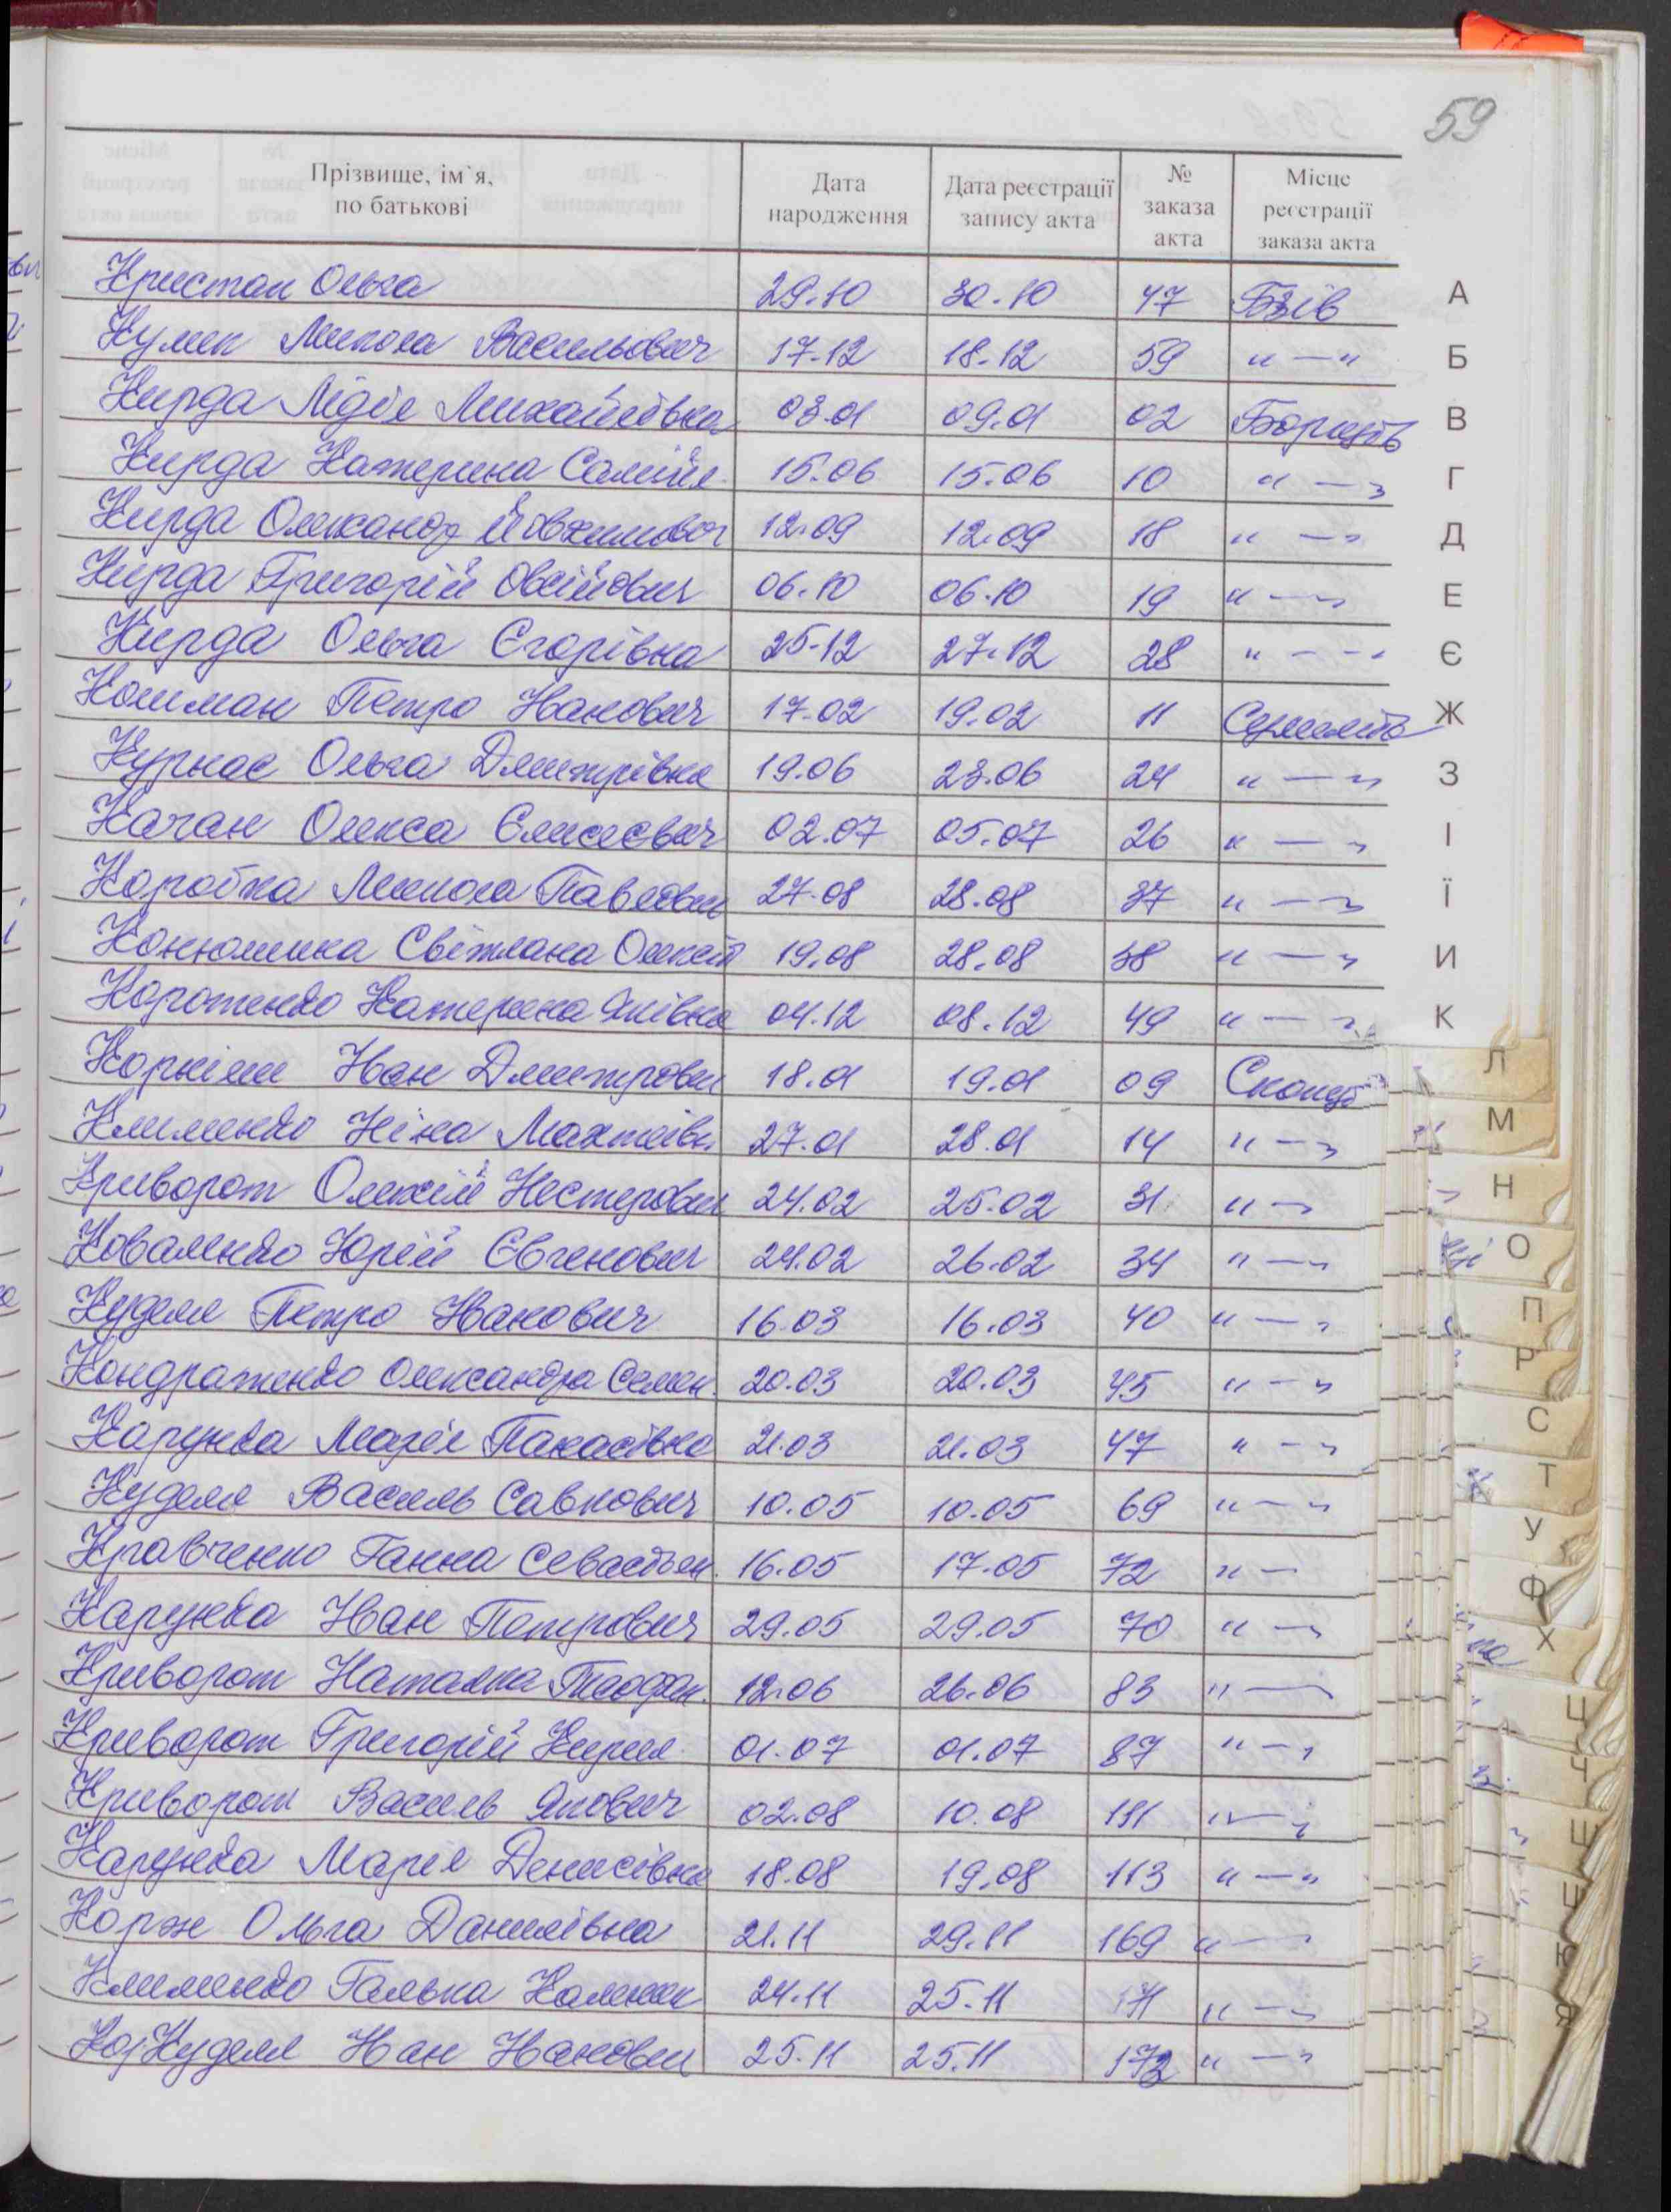 59
Прізвище, ім`я, по батькові | Дата народження | Дата реєстрації запису акта | № заказа акта | Місце реєстрації заказа акта
Кристан Ольга 29.10 30.10 47 Бзів
Кулик Микола Васильович 17.12 18.12 59 " — "
Кирда Лідія Михайлівна 03.01 09.01 02
Кирда Катерина 15.06 15.06 10 " — "
Кирда Олександр 12.09 12.09 18 " — "
Кирда Григорій Овсійович 06.10 06.10 19 " — "
Кирда Ольга Єгорівна 25.12 27.12 28 " — "
Кошман Петро Іванович 17.02 19.02 11
Курнас Ольга Дмитрівна 19.06 23.06 24 " — "
Качан Олекса Єлисеєвич 02.07 05.07 26 " — "
Коробка Микола Павлович 27.08 28.08 37 " — "
Конюшина Світлана 19.08 28.08 38 " — "
Коротенко Катерина Яківна 04.12 08.12 49 " — "
Корнієш Іван Дмитрович 18.01 19.01 09
Клименко Ніна 27.01 28.01 14 " — "
Криворот Олексій Нестерович 24.02 25.02 31 " — "
Коваленко Юрій Євгенович 24.02 26.02 34 " — "
Куделя Петро Іванович 16.03 16.03 40 " — "
Кондратенко Олександра Семен. 20.03 20.03 45 " — "
Карунка Марія Панасівна 21.03 21.03 47 " — "
Куделя Василь Савкович 10.05 10.05 69 " — "
Кравченко Ганна Севастьян. 16.05 17.05 72 " —
Карунка Іван Петрович 29.05 29.05 70 " — "
Криворот Наталка Теофан. 12.06 26.06 83 " —
Криворот Григорій Кирил. 01.07 01.07 87 " — "
Криворот Василь Якович 02.08 10.08 111 " — "
Карунка Марія Денисівна 18.08 19.08 113 " — "
Корж Ольга Данилівна 21.11 29.11 169 " —
Клименко Галька 24.11 25.11 171 " — "
Куделя Іван Іванович 25.11 25.11 172 " — "
А
Б
В
Г
Д
Е
Є
Ж
З
І
Ї
И
К
Л
М
Н
О
П
Р
С
Т
У
Ф
Х
Ц
Ч
Ш
Щ
Ю
Я